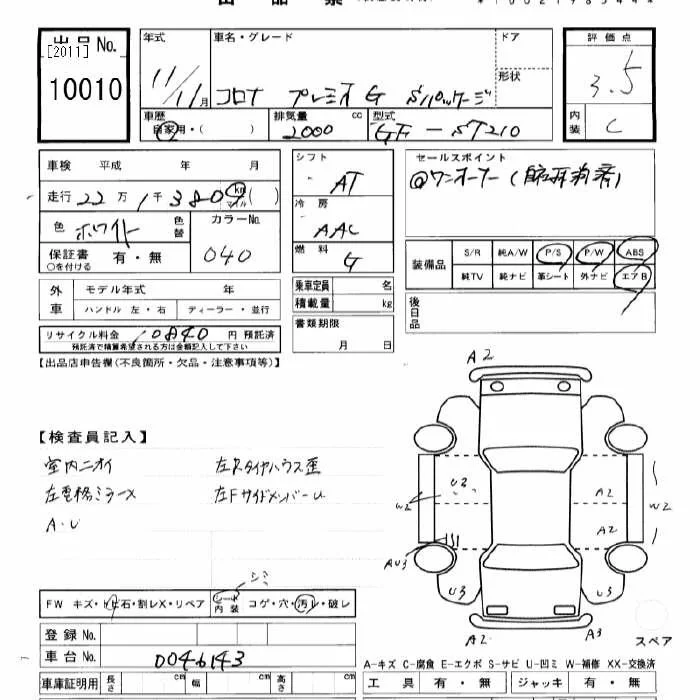 出品No.
[2011]
10010
年式
11/11月
車名・グレード
コロナ プレミオ G Sパッケージ
ドア
形状
評価点
3.5
内装
C
車歴
自家用・( )
排気量
2000 cc
型式
GF-ST210
車検 平成 年 月
走行 22万1千380 km マイル ( )
色
ホワイト
色替
カラーNo.
040
保証書 有・無
○を付ける
シフト
AT
冷房
AAC
燃料
G
セールスポイント
装備品
S/R 純A/W P/S P/W ABS
純TV 純ナビ 革シート 外ナビ エアB
外車
モデル年式 年
ハンドル 左・右 ディーラー・並行
乗車定員 名
積載量 kg
後日品
リサイクル料金 10840 円 預託済
預託済で精算希望される方は金額記入して下さい
書類期限
月 日
【出品店申告欄(不良箇所・欠品・注意事項等)】
【検査員記入】
室内ニオイ
左Rタイヤハウス歪
左電格ミラーX
左FサイドメンバーU
A・U
A2
U2
W2
A2
A2
W2
AU3
U3
U3
A2
A3
スペア
シミ
FW キズ・トビ石・割レX・リペア
シート
内装
コゲ・穴・汚レ・破レ
登録No.
車台No.
0046143
A-キズ C-腐食 E-エクボ S-サビ U-凹ミ W-補修 XX-交換済
車庫証明用 長さ cm 幅 cm 高さ cm
工具 有・無 ジャッキ 有・無